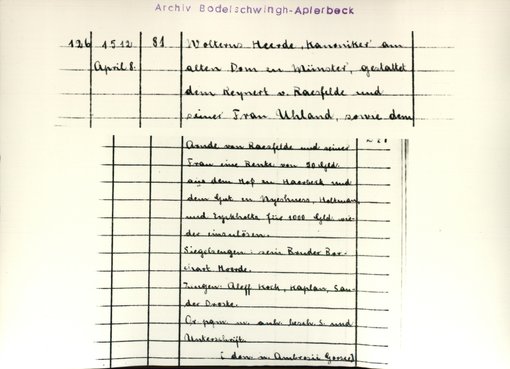 Archiv Bodelschwingh-Aplerbeck
126 1512 81 Wolterus Heerde, Kanoniker am
April 8. alten Dom in Münster, gestattet
dem Reynert v. Raesfelde und
seiner Frau Uhland, sowie dem
Arnde van Raesfelde und seiner
Frau eine Rente von 50 Gld.
aus dem Hof in Haerbeck und
dem Gut en Nyeshues, Holtman
und Eyckholte für 1000 Gld. wie-
der einzulösen.
Siegelzeugen: sein Bruder Bor-
chart Heerde.
Zeugen: Aleff Kock, Kaplan, San-
der Droste.
Or. pgm. m. anh. besch. S. und
Unterschrift.
[dom. n. Ambrosii